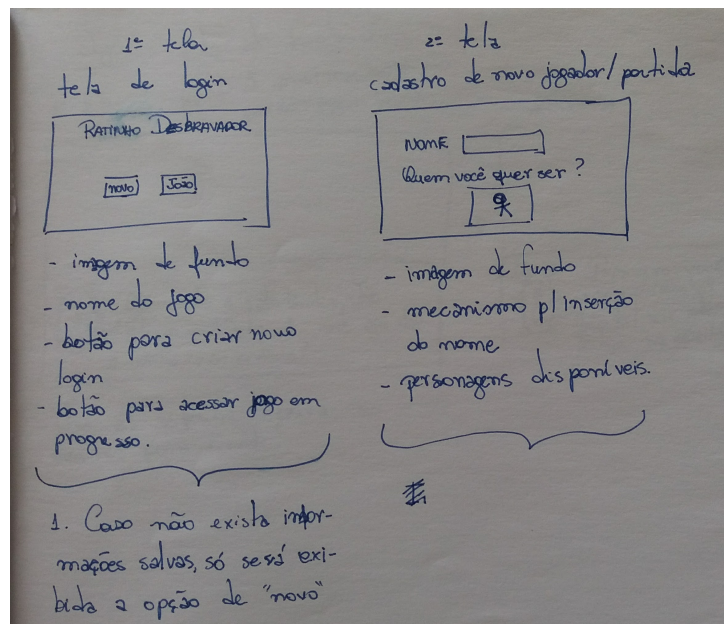 1ª tela
tela de login
RATINHO DESBRAVADOR
novo João
- imagem de fundo
- nome do jogo
- botão para criar novo
login
- botão para acessar jogo em
progresso.
1. Caso não exista infor-
mações salvas, só será exi-
bida a opção de "novo"
2ª tela
cadastro de novo jogador/partida
NOME
Quem você quer ser?
- imagem de fundo
- mecanismo p/ inserção
do nome
- personagens disponíveis.